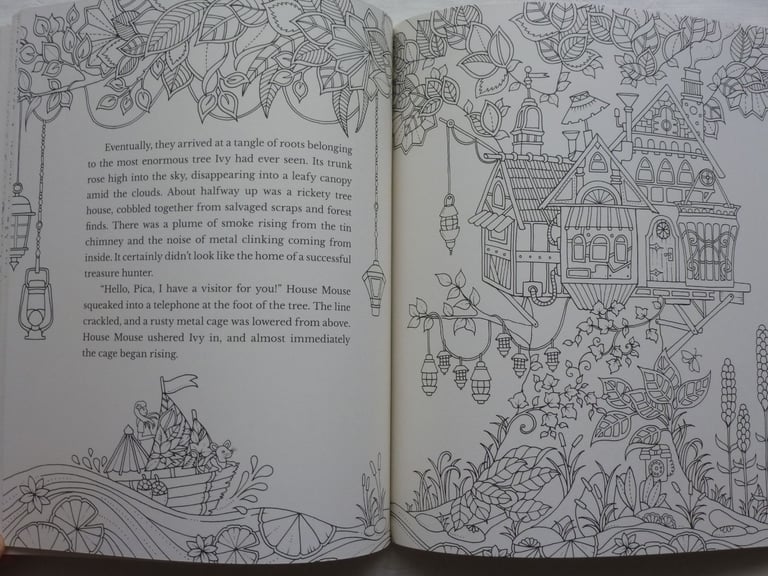 Eventually, they arrived at a tangle of roots belonging
to the most enormous tree Ivy had ever seen. Its trunk
rose high into the sky, disappearing into a leafy canopy
amid the clouds. About halfway up was a rickety tree
house, cobbled together from salvaged scraps and forest
finds. There was a plume of smoke rising from the tin
chimney and the noise of metal clinking coming from
inside. It certainly didn't look like the home of a successful
treasure hunter.
"Hello, Pica, I have a visitor for you!" House Mouse
squeaked into a telephone at the foot of the tree. The line
crackled, and a rusty metal cage was lowered from above.
House Mouse ushered Ivy in, and almost immediately
the cage began rising.